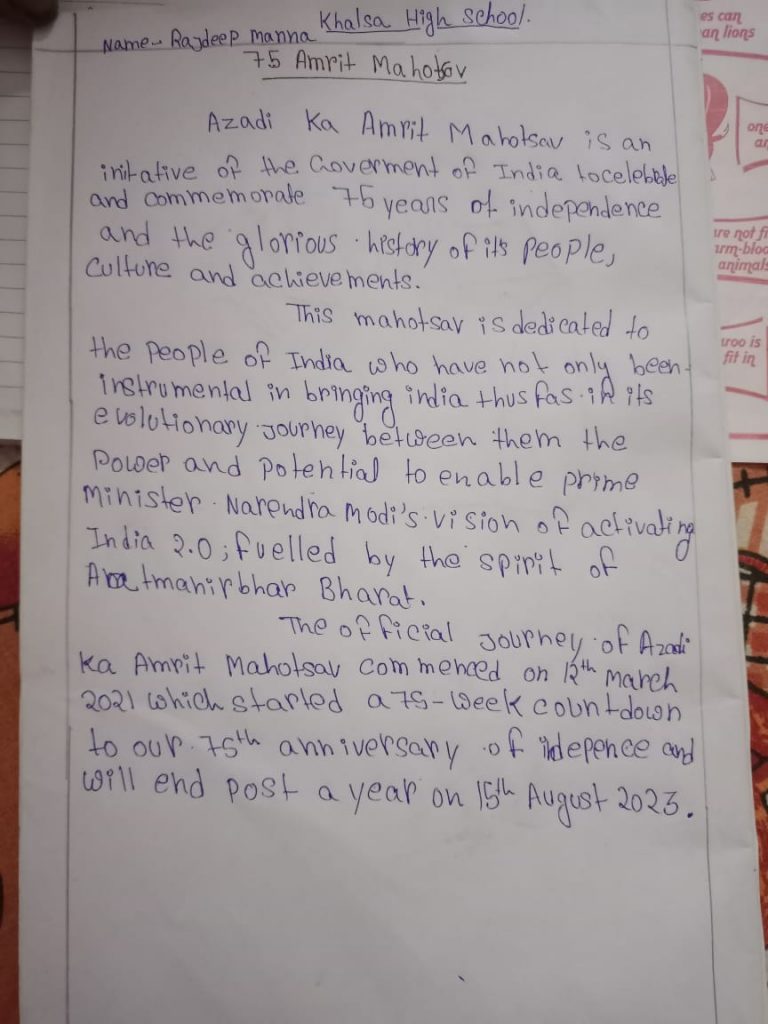 Khalsa High School.
Name- Rajdeep Manna
75 Amrit Mahotsov
Azadi Ka Amrit Mahotsav is an
initative of the Goverment of India to celebrate
and commemorate 75 years of independence
and the glorious history of its people,
Culture and achievements.
This mahotsav is dedicated to
the people of India who have not only been
instrumental in bringing india thus fas in its
evolutionary journey between them the
Power and potential to enable prime
Minister Narendra Modi's vision of activating
India 2.0; fuelled by the spirit of
Aatmanirbhar Bharat.
The official journey of Azadi
Ka Amrit Mahotsav commenced on 12th March
2021 which started a 75-week countdown
to our 75th anniversary of idepence and
will end post a year on 15th August 2023.
es can
an lions
one
ar
are not fi
arm-bloo
animals
aroo is
fit in